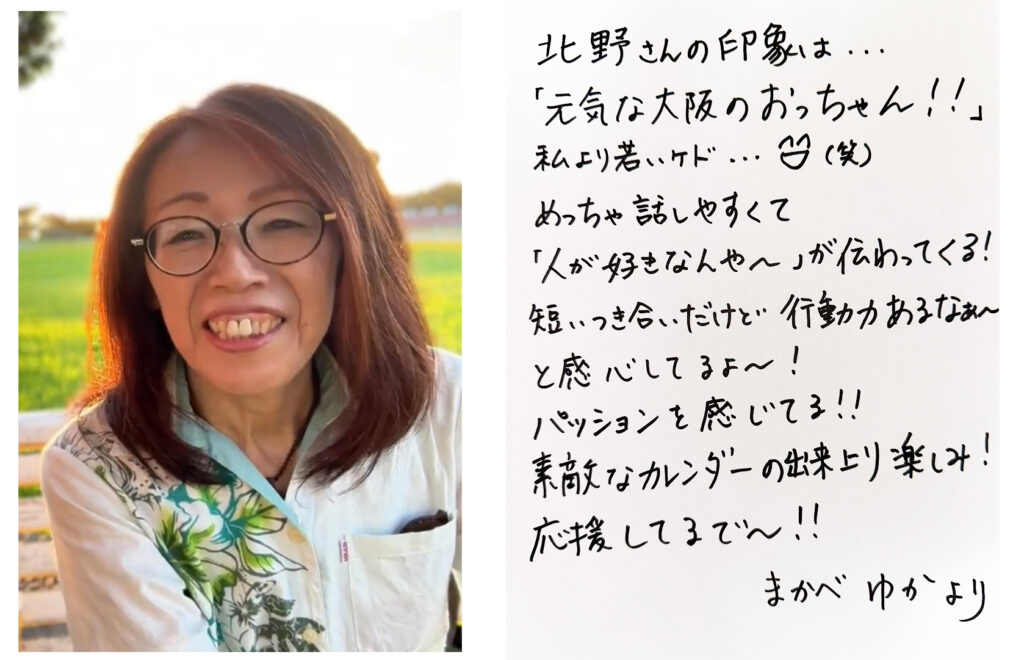 北野さんの印象は...
「元気な大阪のおっちゃん!!」
私より若いケド...(笑)
めっちゃ話しやすくて
「人が好きなんや〜」が伝わってくる!
短いつき合いだけど行動力あるなぁ〜
と感心してるよ〜!
パッションを感じてる!!
素敵なカレンダーの出来上り楽しみ!
応援してるで〜!!
まかべ ゆかより